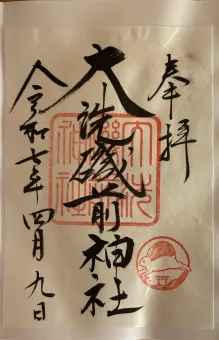 奉拝
大洗磯前神社
令和七年四月九日